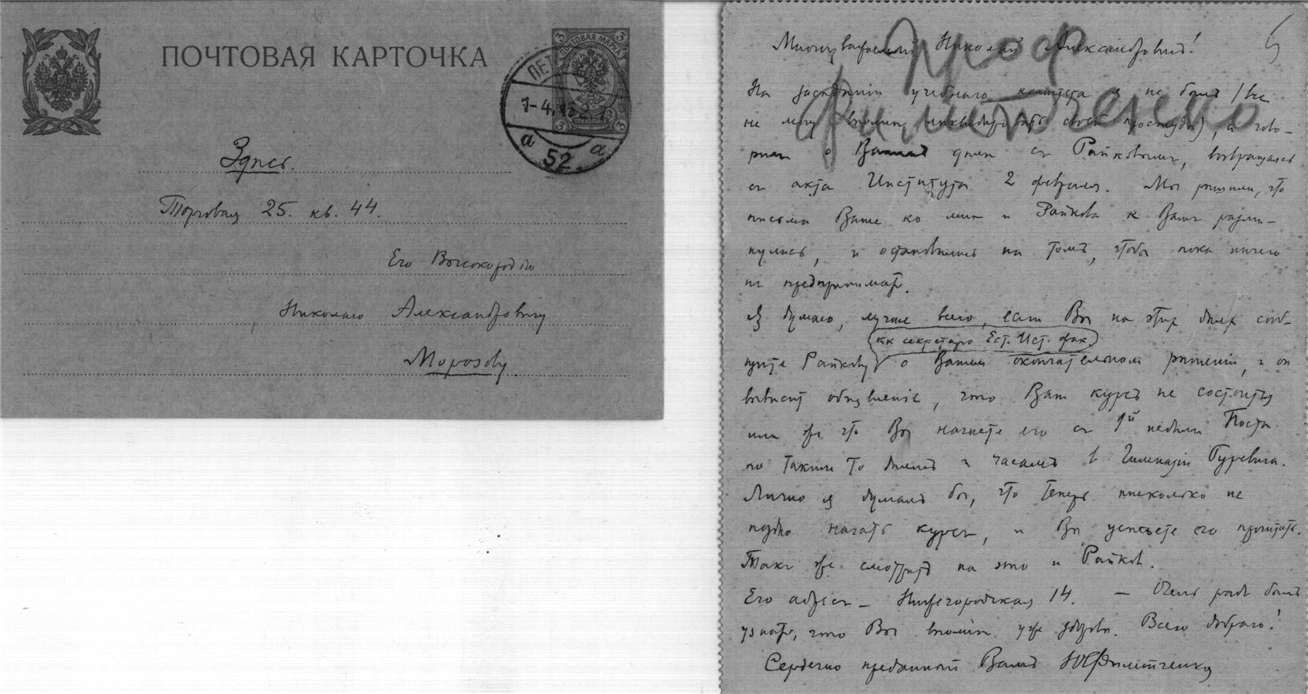 ПОЧТОВАЯ КАРТОЧКА
ПОЧТОВАЯ МАРКА
3 3
ПЕТ
7-4
а 52 а
Здѣсь.
Торговая 25. кв. 44.
Его Высокородію
Николаю Александровичу
Морозову
проф
Филипченко
5
Многоуважаемый Николай Александровичъ!
На засѣданіи учебнаго комитета я не былъ (все
не могу вполнѣ ликвидировать своей простуды), а гово-
рили о Вашемъ дѣлѣ съ Райковымъ, возвращаясь
съ акта Института 2 февраля. Мы рѣшили, что
письма Ваше ко мнѣ и Райкова к Вамъ разми-
нулись, и остановились на томъ, чтобы пока ничего
не предпринимать.
Я думаю, лучше всего, если Вы на этих дняхъ сооб-
как секретарю Ест. Ист. фак
щите Райкову о Вашем окончательном рѣшеніи, и он
вывѣситъ объявленіе, что Ваш курсъ не состоится
или же что Вы начнете его съ 1й недѣли Поста
по таким то днямъ и часамъ в Гимназіи Гуревича.
Лично я думалъ бы, что теперь нисколько не
поздно начать курсъ, и Вы успѣете его прочитать.
Такъ же смотритъ на это и Райков.
Его адресъ – Нижегородская 14. – Очень радъ былъ
узнать, что Вы вполнѣ уже здоровы. Всего добраго!
Сердечно преданный Вамъ ЮФилипченко